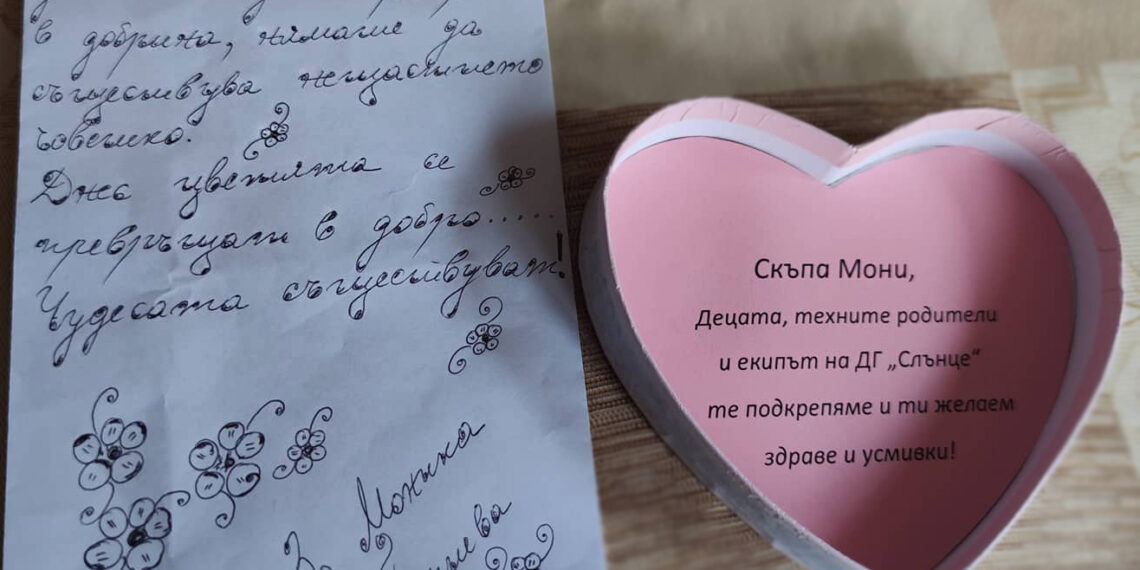 в добрина, нямаше да
съществува нещастието
човешко.
Днес цветята се
превръщат в добро.....
Чудесата съществуват!
За Моника
Скъпа Мони,
Децата, техните родители
и екипът на ДГ „Слънце“
те подкрепяме и ти желаем
здраве и усмивки!